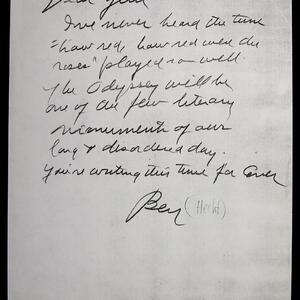 Dear
I've never heard the tune
"how red, how red were the
roses" played so well.
The Odyssey will be
one of the few literary
monuments of our
long & disordered day.
You're writing this time for Ever
Ben (Hecht)